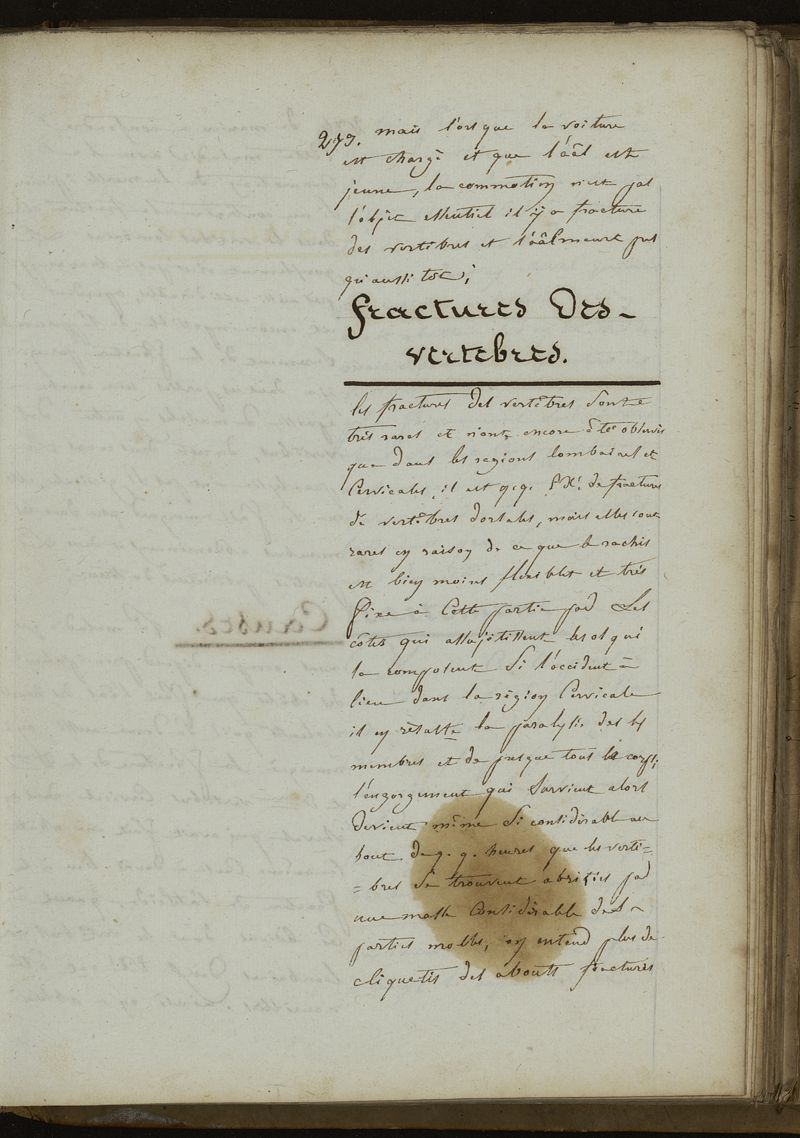 273. mais lorsque la voiture
est chargé et que l'âal est
jeune, la commotion n'est pas
l'objet essentiel il y a fracture
des vertèbres et l'âal meurt pres
qu'aussi tôt;
fractures Des-
vertebres.
les fractures des vertèbres sont
très rares et n'ont encore été observés
que dans les regions lombaires et
Cervicales, il est qcq. de fractures
de vertèbres dorsales, mais elles sont
rares en raison de ce que le rachis
est bien moins flexibles et très
fixe à cette partie par les
côtes qui assujetissent les os qui
la composent Si l'accident à
lieu dans la région Cervicale
il en résulte la paralysie des 4
membres et de presque tous le corps;
l'engorgement qui survient alors
devient même si considérable au
bout de q. q. heures que les vertè=
=bres se trouvent abrités par
une masse considérable de
parties molles, on entend plus de
cliquetis des abouts fracturés
Causes.